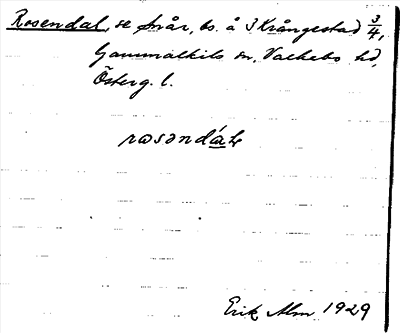 Rosendal, se Snår, bs. å 3 Krångestad 3/4,
Gammalkils sn, Valkebo hd,
Österg. l.
rosəndáɫ
Erik Alm 1929